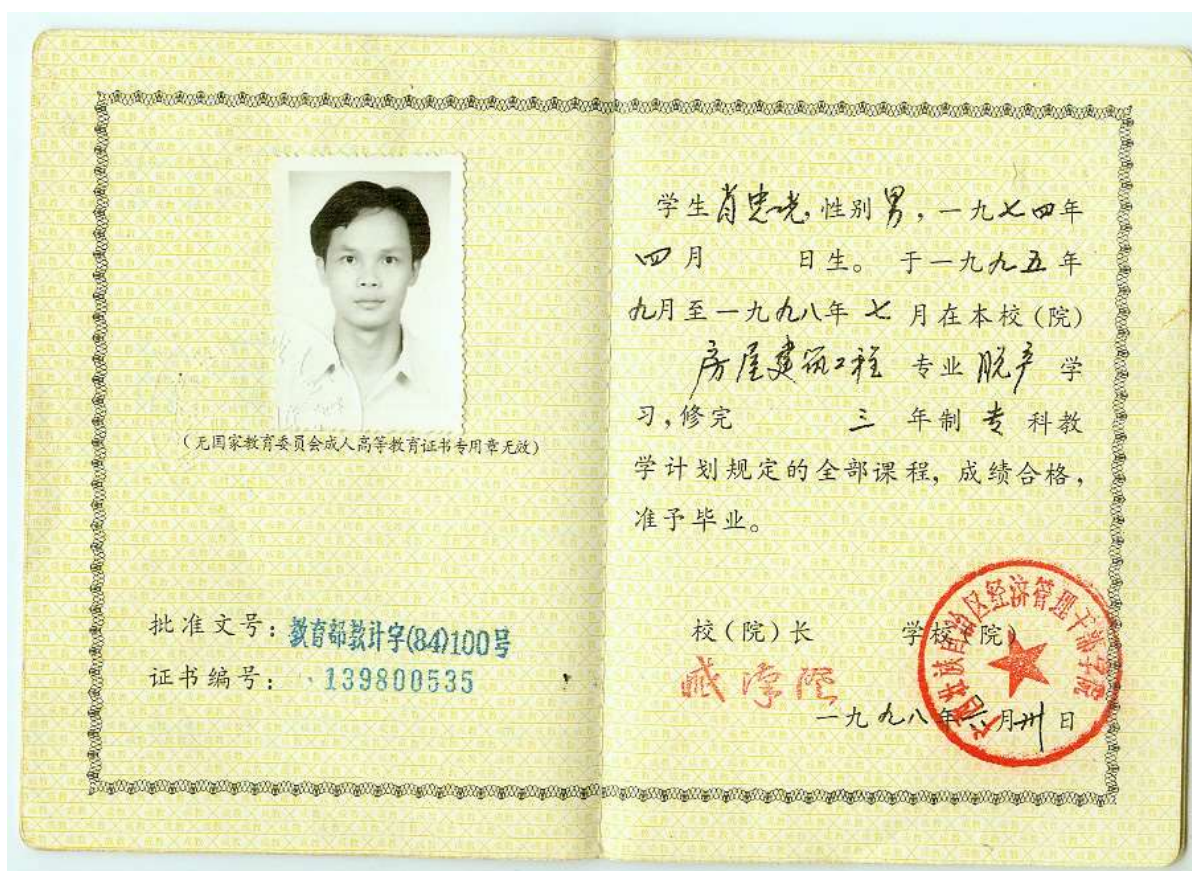 (无国家教育委员会成人高等教育证书专用章无效)
批准文号：教育部教计字(84)100号
证书编号：139800535
学生肖忠光,性别男,一九七四年
四月 日生。于一九九五年
九月至一九九八年七月在本校(院)
房屋建筑工程 专业脱产学
习,修完 三年制专科教
学计划规定的全部课程,成绩合格,
准予毕业。
校(院)长 学校(院)
广西壮族自治区经济管理干部学院
一九九八年 月卅日